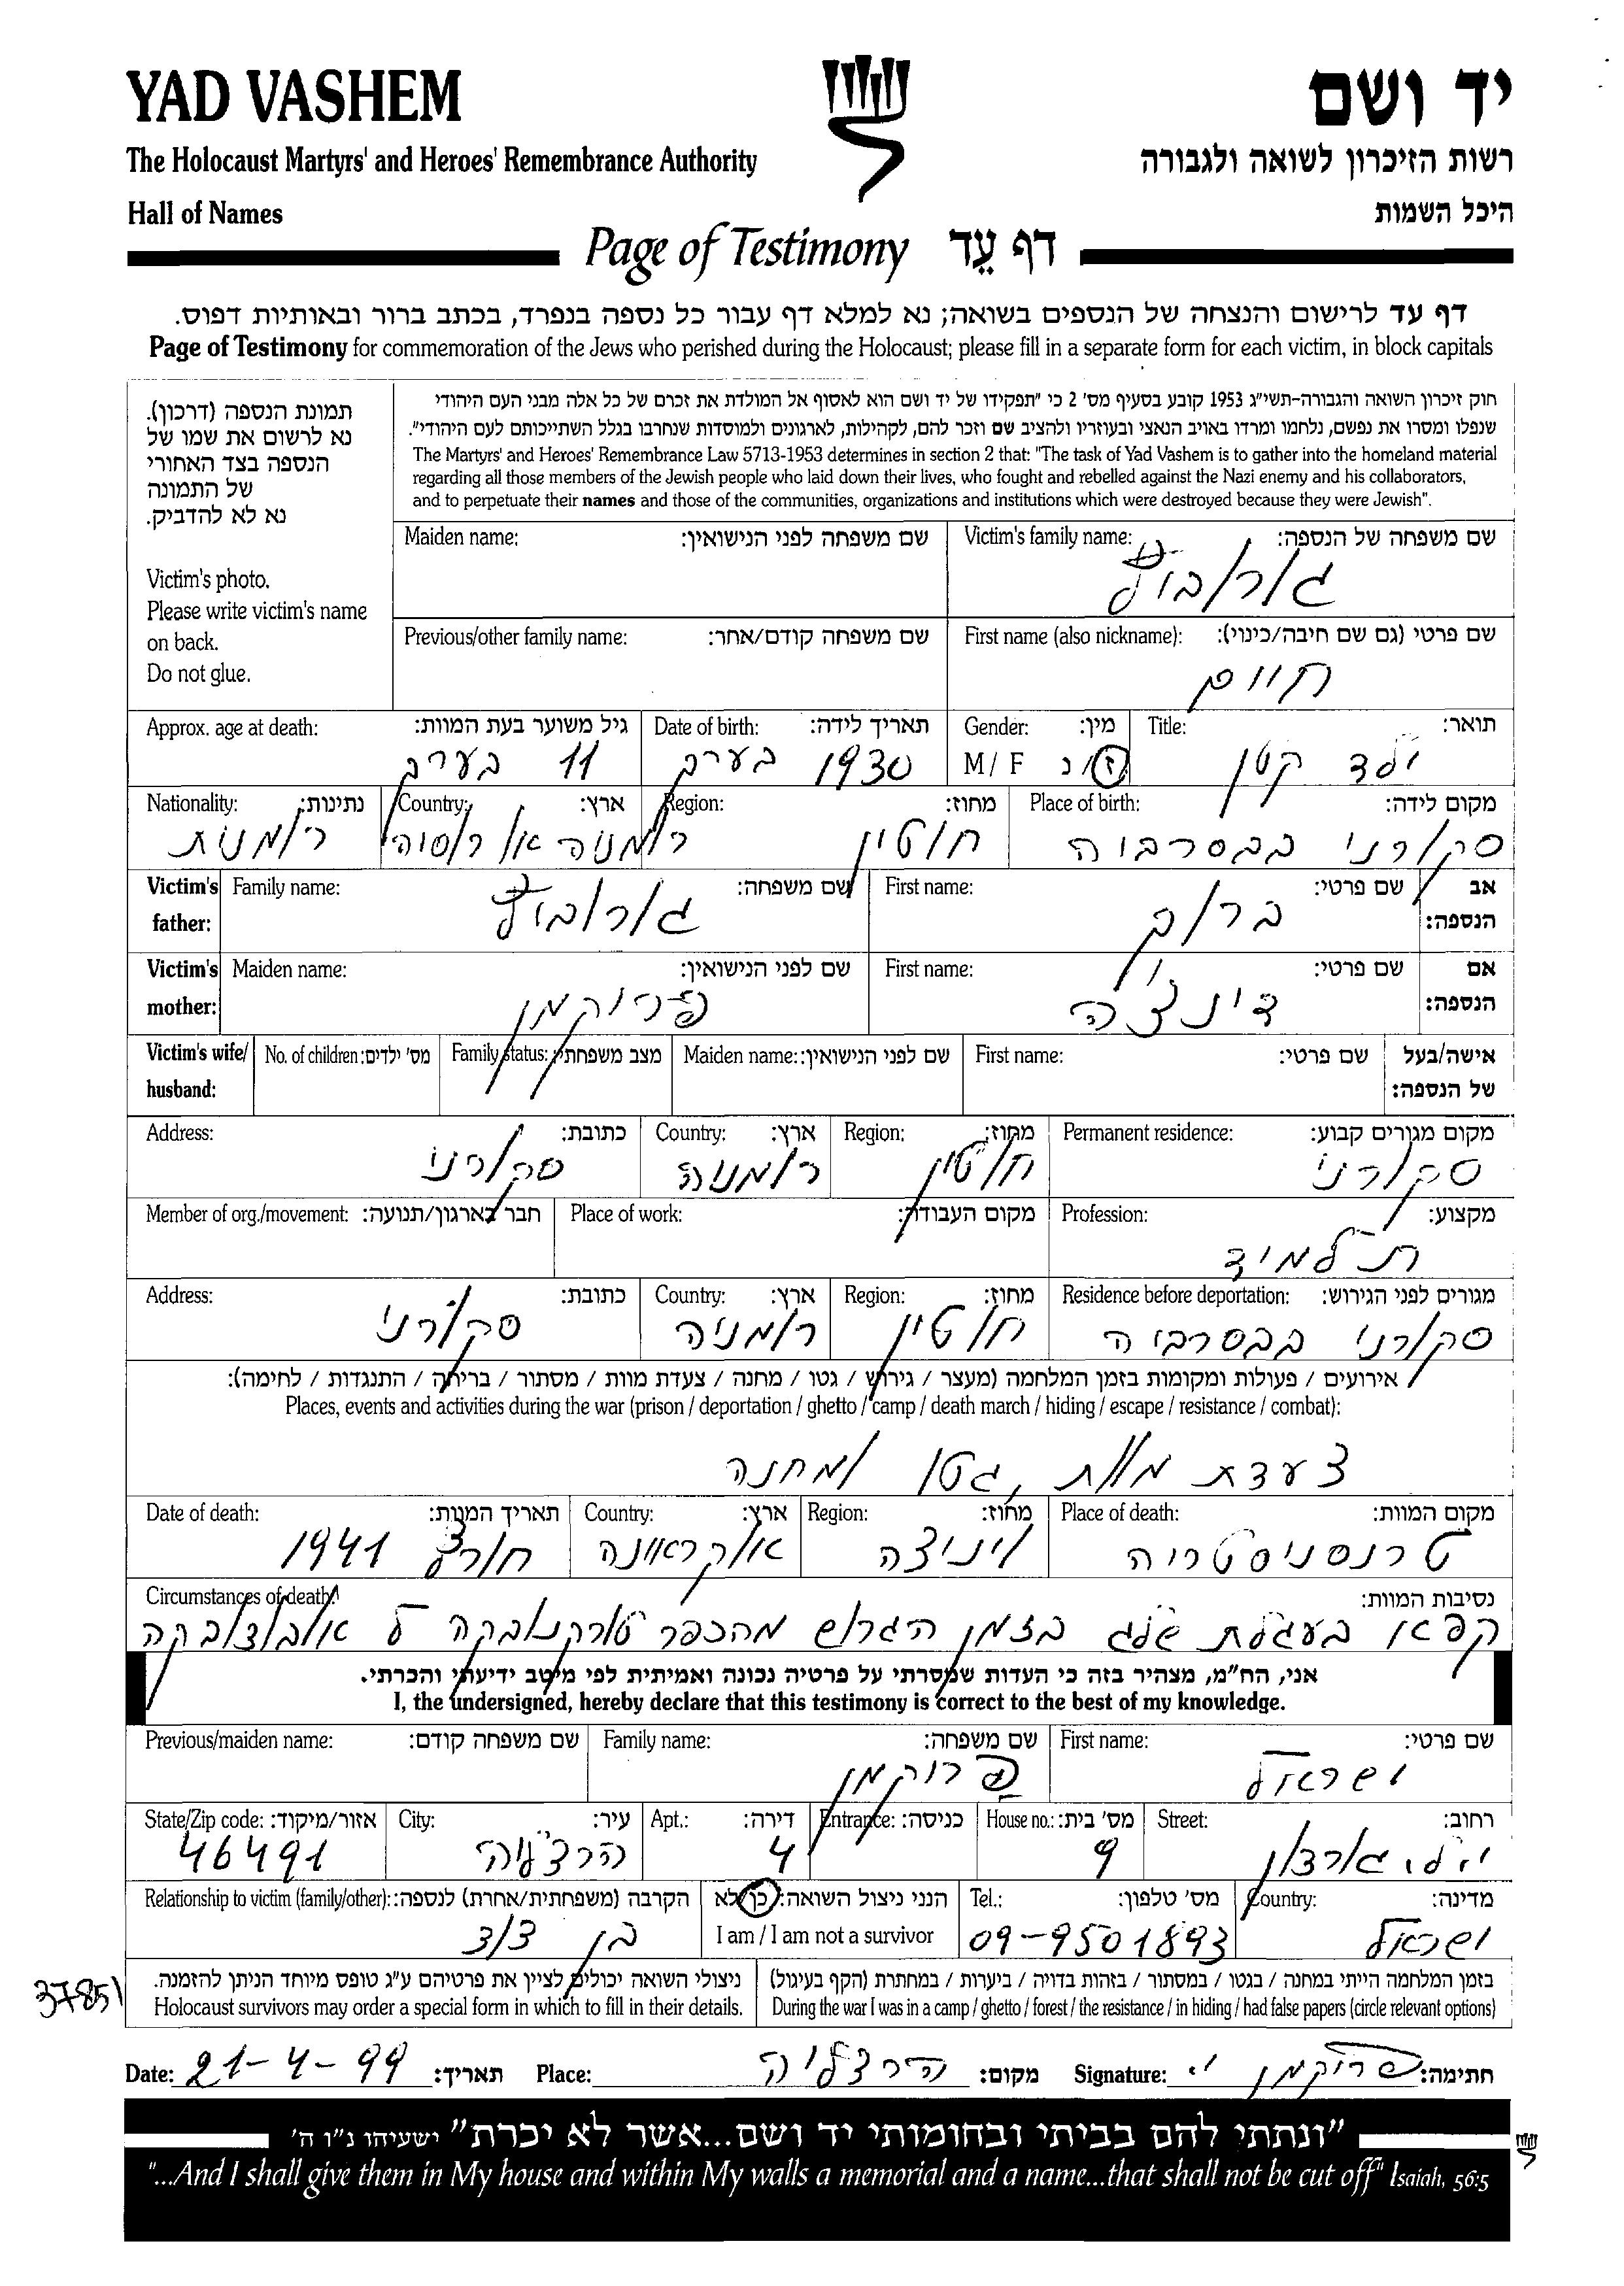 YAD VASHEM
יד ושם
The Holocaust Martyrs' and Heroes' Remembrance Authority
רשות הזיכרון לשואה ולגבורה
Hall of Names
היכל השמות
Page of Testimony דף עֵד
דף עד לרישום והנצחה של הנספים בשואה; נא למלא דף עבור כל נספה בנפרד, בכתב ברור ובאותיות דפוס.
Page of Testimony for commemoration of the Jews who perished during the Holocaust; please fill in a separate form for each victim, in block capitals
תמונת הנספה (דרכון).
נא לרשום את שמו של
הנספה בצד האחורי
של התמונה
נא לא להדביק.
Victim's photo.
Please write victim's name
on back.
Do not glue.
חוק זיכרון השואה והגבורה-תשי"ג 1953 קובע בסעיף מס' 2 כי "תפקידו של יד ושם הוא לאסוף אל המולדת את זכרם של כל אלה מבני העם היהודי
שנפלו ומסרו את נפשם, נלחמו ומרדו באויב הנאצי ובעוזריו ולהציב שם וזכר להם, לקהילות, לארגונים ולמוסדות שנחרבו בגלל השתייכותם לעם היהודי".
The Martyrs' and Heroes' Remembrance Law 5713-1953 determines in section 2 that: "The task of Yad Vashem is to gather into the homeland material
regarding all those members of the Jewish people who laid down their lives, who fought and rebelled against the Nazi enemy and his collaborators,
and to perpetuate their names and those of the communities, organizations and institutions which were destroyed because they were Jewish".
שם משפחה של הנספה: Victim's family name:
שם משפחה לפני הנישואין: Maiden name:
שם פרטי (גם שם חיבה/כינוי): First name (also nickname):
חיים
שם משפחה קודם/אחר: Previous/other family name:
תואר: Title:
ילד קטן
מין: Gender:
ז/נ M / F
תאריך לידה: Date of birth:
1930 בערך
גיל משוער בעת המוות: Approx. age at death:
11 בערך
מקום לידה: Place of birth:
סקורני בבסרביה
מחוז: Region:
חוטין
ארץ: Country:
רומניה או רוסיה
נתינות: Nationality:
רומנית
אב הנספה: Victim's father:
שם פרטי: First name:
ברוך
שם משפחה: Family name:
אם הנספה: Victim's mother:
שם פרטי: First name:
דינצ'ה
שם לפני הנישואין: Maiden name:
פרוקמן
אישה/בעל של הנספה: Victim's wife/ husband:
שם פרטי: First name:
שם לפני הנישואין: Maiden name:
מצב משפחתי: Family status:
מס' ילדים: No. of children:
מקום מגורים קבוע: Permanent residence:
סקורני
מחוז: Region:
חוטין
ארץ: Country:
רומניה
כתובת: Address:
סקורני
מקצוע: Profession:
תלמיד
מקום העבודה: Place of work:
חבר בארגון/תנועה: Member of org./movement:
מגורים לפני הגירוש: Residence before deportation:
סקורני בבסרביה
מחוז: Region:
חוטין
ארץ: Country:
רומניה
כתובת: Address:
סקורני
אירועים / פעולות ומקומות בזמן המלחמה (מעצר / גירוש / גטו / מחנה / צעדת מוות / מסתור / בריחה / התנגדות / לחימה):
Places, events and activities during the war (prison / deportation / ghetto / camp / death march / hiding / escape / resistance / combat):
צעדת מוות, גטו ומחנה
מקום המוות: Place of death:
טרנסניסטריה
מחוז: Region:
ויניצה
ארץ: Country:
אוקראינה
תאריך המוות: Date of death:
חורף 1941
נסיבות המוות: Circumstances of death:
קפא בעגלת שלג בזמן הגרוש מהכפר ל
אני, הח"מ, מצהיר בזה כי העדות שמסרתי על פרטיה נכונה ואמיתית לפי מיטב ידיעתי והכרתי.
I, the undersigned, hereby declare that this testimony is correct to the best of my knowledge.
שם פרטי: First name:
ישראל
שם משפחה: Family name:
פרוקמן
שם משפחה קודם: Previous/maiden name:
רחוב: Street:
י.ל. גורדון
מס' בית: House no.:
9
כניסה: Entrance:
דירה: Apt.:
4
עיר: City:
הרצליה
אזור/מיקוד: State/Zip code:
46491
מדינה: Country:
ישראל
מס' טלפון: Tel.:
09-9501893
הנני ניצול השואה: כן/לא
I am / I am not a survivor
הקרבה (משפחתית/אחרת) לנספה: Relationship to victim (family/other):
בן דוד
בזמן המלחמה הייתי במחנה / בגטו / במסתור / בזהות בדויה / ביערות / במחתרת (הקף בעיגול)
During the war I was in a camp / ghetto / forest / the resistance / in hiding / had false papers (circle relevant options)
ניצולי השואה יכולים לציין את פרטיהם ע"ג טופס מיוחד הניתן להזמנה.
Holocaust survivors may order a special form in which to fill in their details.
37851
חתימה: Signature: פרוקמן י
מקום: Place: הרצליה
תאריך: Date: 21-4-99
"ונתתי להם בביתי ובחומותי יד ושם...אשר לא יכרת" ישעיהו נ"ו ה'
"...And I shall give them in My house and within My walls a memorial and a name...that shall not be cut off" Isaiah, 56:5